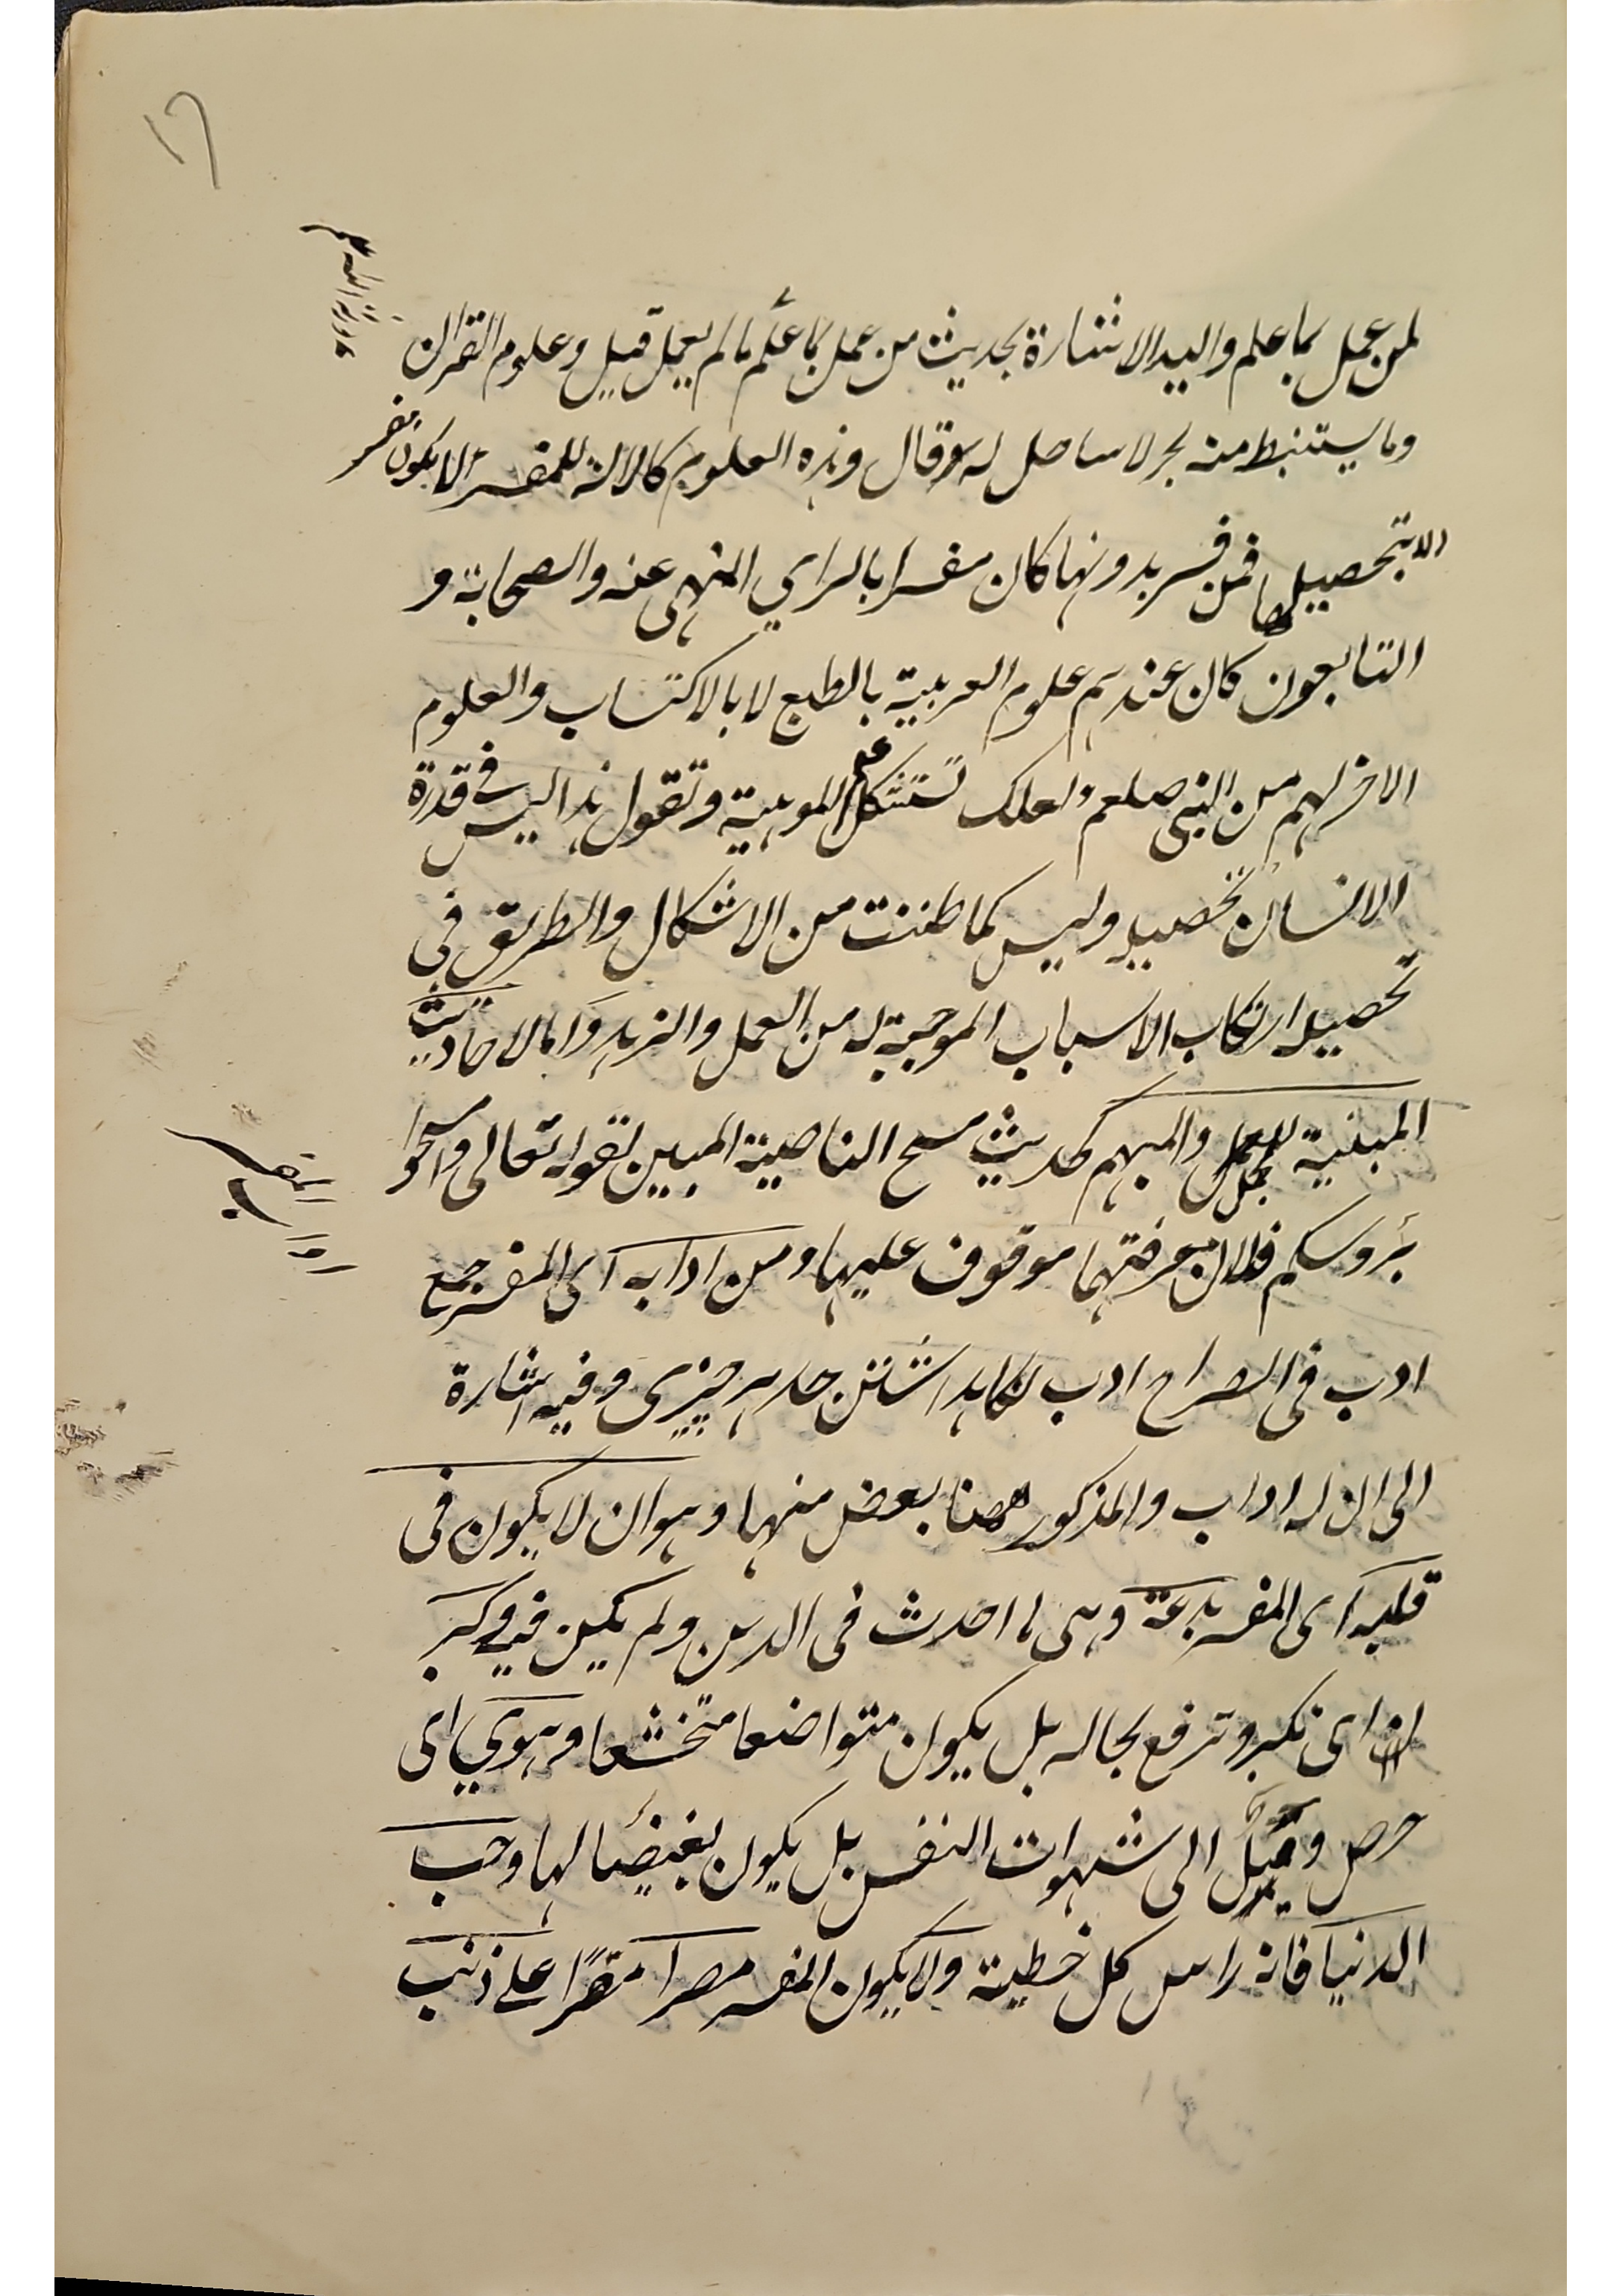 ١٦
لمن عمل بما علم واليه الاشارة بحديث من عمل بما علم ما لم يعمل قيل وعلوم القرآن
وما يستنبط منه بحر لا ساحل له وقال وهذه العلوم كالالة للمفسر لا يكون مفسر
الا بتحصيلها فمن فسر بدونها كان مفسرا بالراي المنهى عنه والصحابة و
التابعون كان عندهم علوم العربية بالطبع لا بالاكتساب والعلوم
الاخر لهم من النبى صلعم ولعلك تستشكل علم الموهبة وتقول هذا ليس فى قدرة
الانسان تحصيله وليس كما ظننت من الاشكال والطريق فى
تحصيله ارتكاب الاسباب الموجبة له من العمل والزهد واما الاحاديث
المبنية للمجمل والمبهم كحديث مسح الناصية المبين لقوله تعالى وامسحوا
برؤسكم فلان معرفتهما موقوف عليها ومن ادابه اى المفسر جمع
ادب فى الصراح ادب نكاهداشتن حد هر چيزى وفيه اشارة
الى ان له اداب والمذكور ههنا بعض منها وهو ان لا يكون فى
قلبه اى المفسر بدعة وهى ما احدث فى الدين ولم يكن فيه وكبر
اى تكبر وترفع بحاله بل يكون متواضعا متخشعا وهوي اى
حرص وميل الى شهوات النفس بل يكون بغيضا لها وحب
الدنيا فانه راس كل خطيئة ولا يكون المفسر مصرا مقرا على ذنب
اداب المفسر